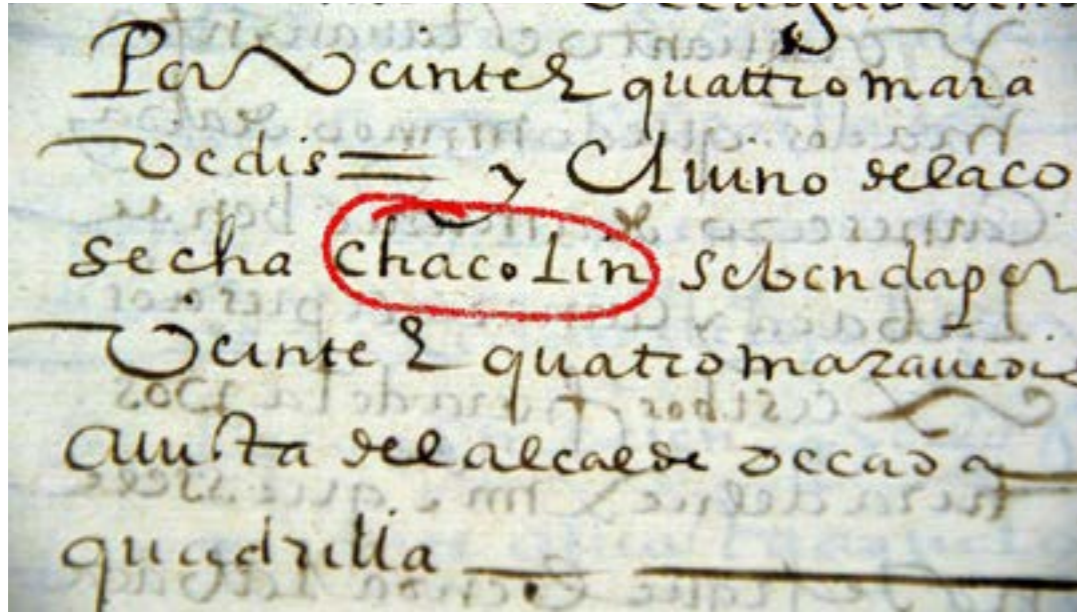 Por Veinte & quattro mara
Vedis = y El uino de la co
secha chacolin se benda por
Veinte & quatro marauedis
a uista del alcalde de cada
quadrilla